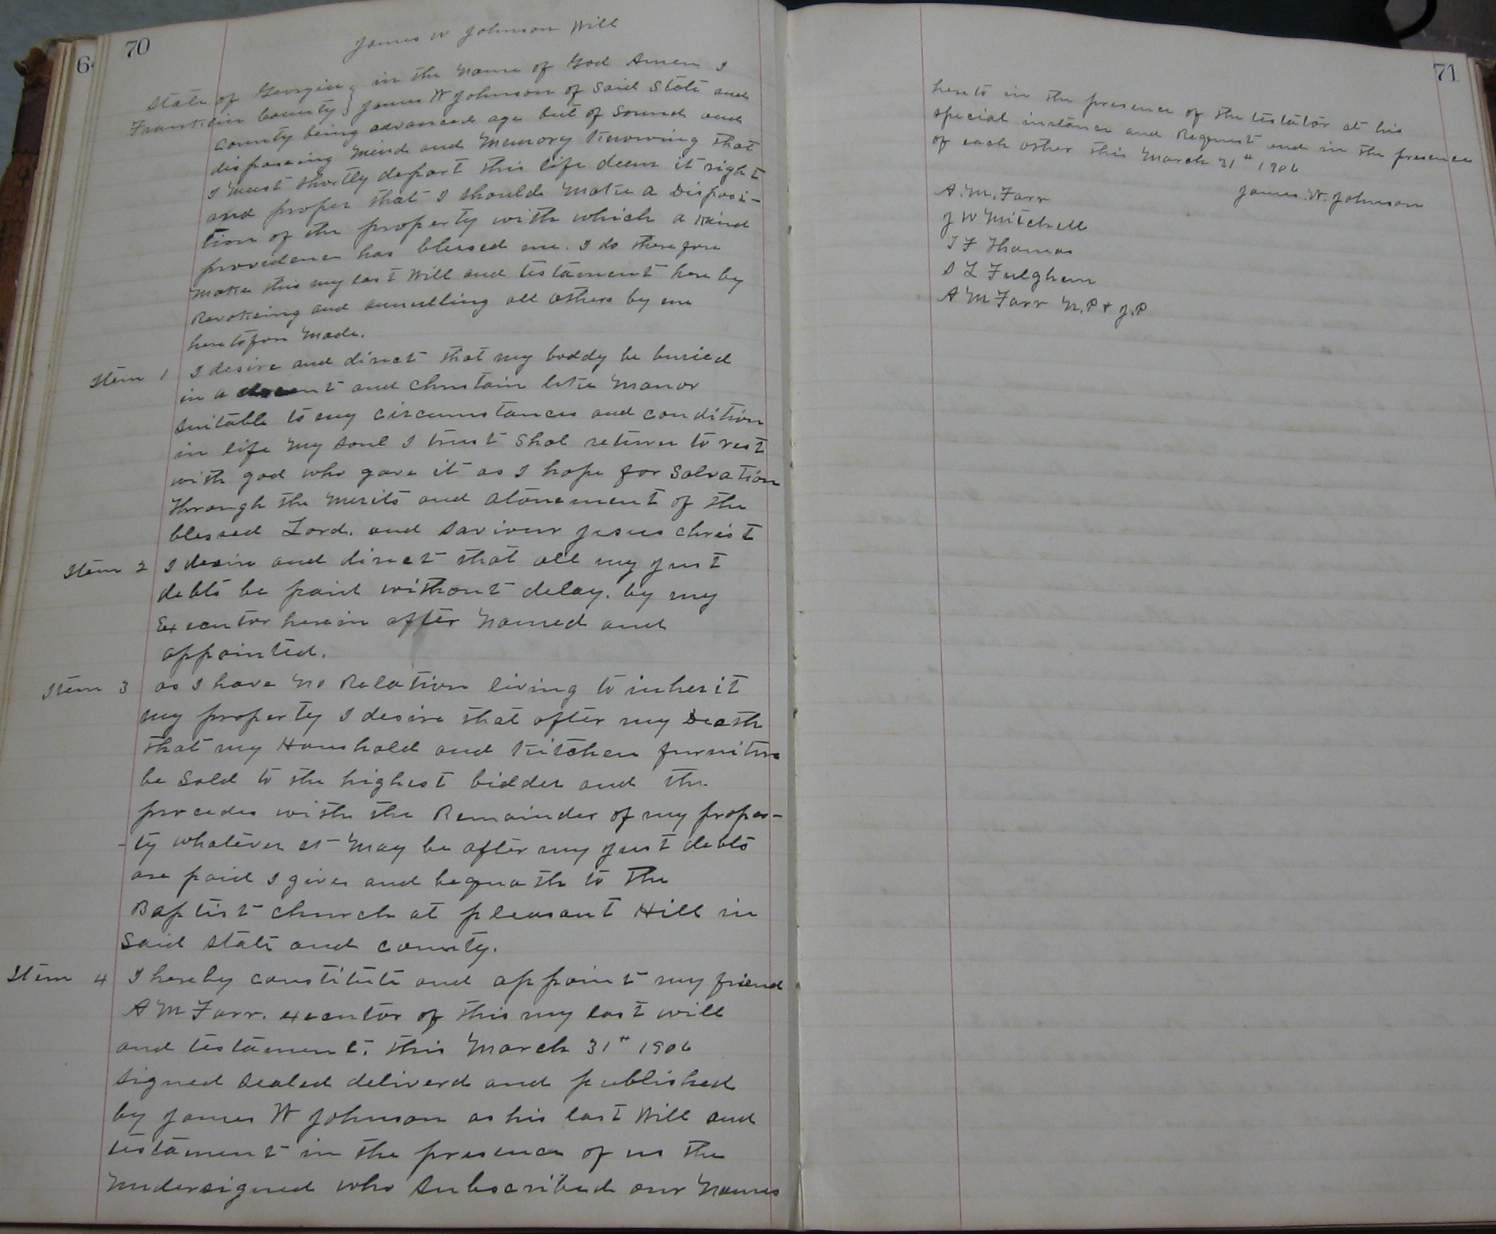 64
70
James W Johnson Will
State of Georgia } in the Name of God Amen I
Franklin County } James W Johnson of Said State and
County being advanced age but of Sound and
disposeing Mind and Memory Knowing that
I Must Shortly depart this life deem it right
and proper that I should Make a Disposi-
tion of the property with which a Kind
providence has blessed me. I do therefore
Make this my last Will and testament here by
Revokeing and annulling all others by me
heretofore Made.
Item 1 I desire and direct that my boddy be buried
in a decent and Christain like Manor
Suitable to my circumstances and condition
in life My Soul I trust Shal return to rest
with god who gave it as I hope for Salvation
through the Merits and atonement of the
blessed Lord. and Saviour Jesus Christ
Item 2 I desire and direct that all my just
debts be paid without delay. by my
Executor herein after Named and
appointed.
Item 3 as I have No Relation living to inherit
my property I desire that after my Death
that my Houshold and Kitchen furniture
be Sold to the highest bidder and the
procedes with the Remainder of my proper-
-ty whatever it May be after my just debts
are paid I give and bequath to the
Baptist Church at pleasant Hill in
Said State and County.
Item 4 I hereby constitute and appoint my friend
A M Farr. executor of this my last will
and testament. this March 31st 1906
Signed Sealed deliverd and published
by James W Johnson as his last Will and
testament in the presence of us the
Undersigned who Subscribed our Names
71
hereto in the presence of the testator at his
special instance and Request and in the presence
of each other this March 31st 1906
James. W. Johnson
A. M. Farr
J W Mitchell
T F Thomas
S L Fulghum
A M Farr N.P & J.P